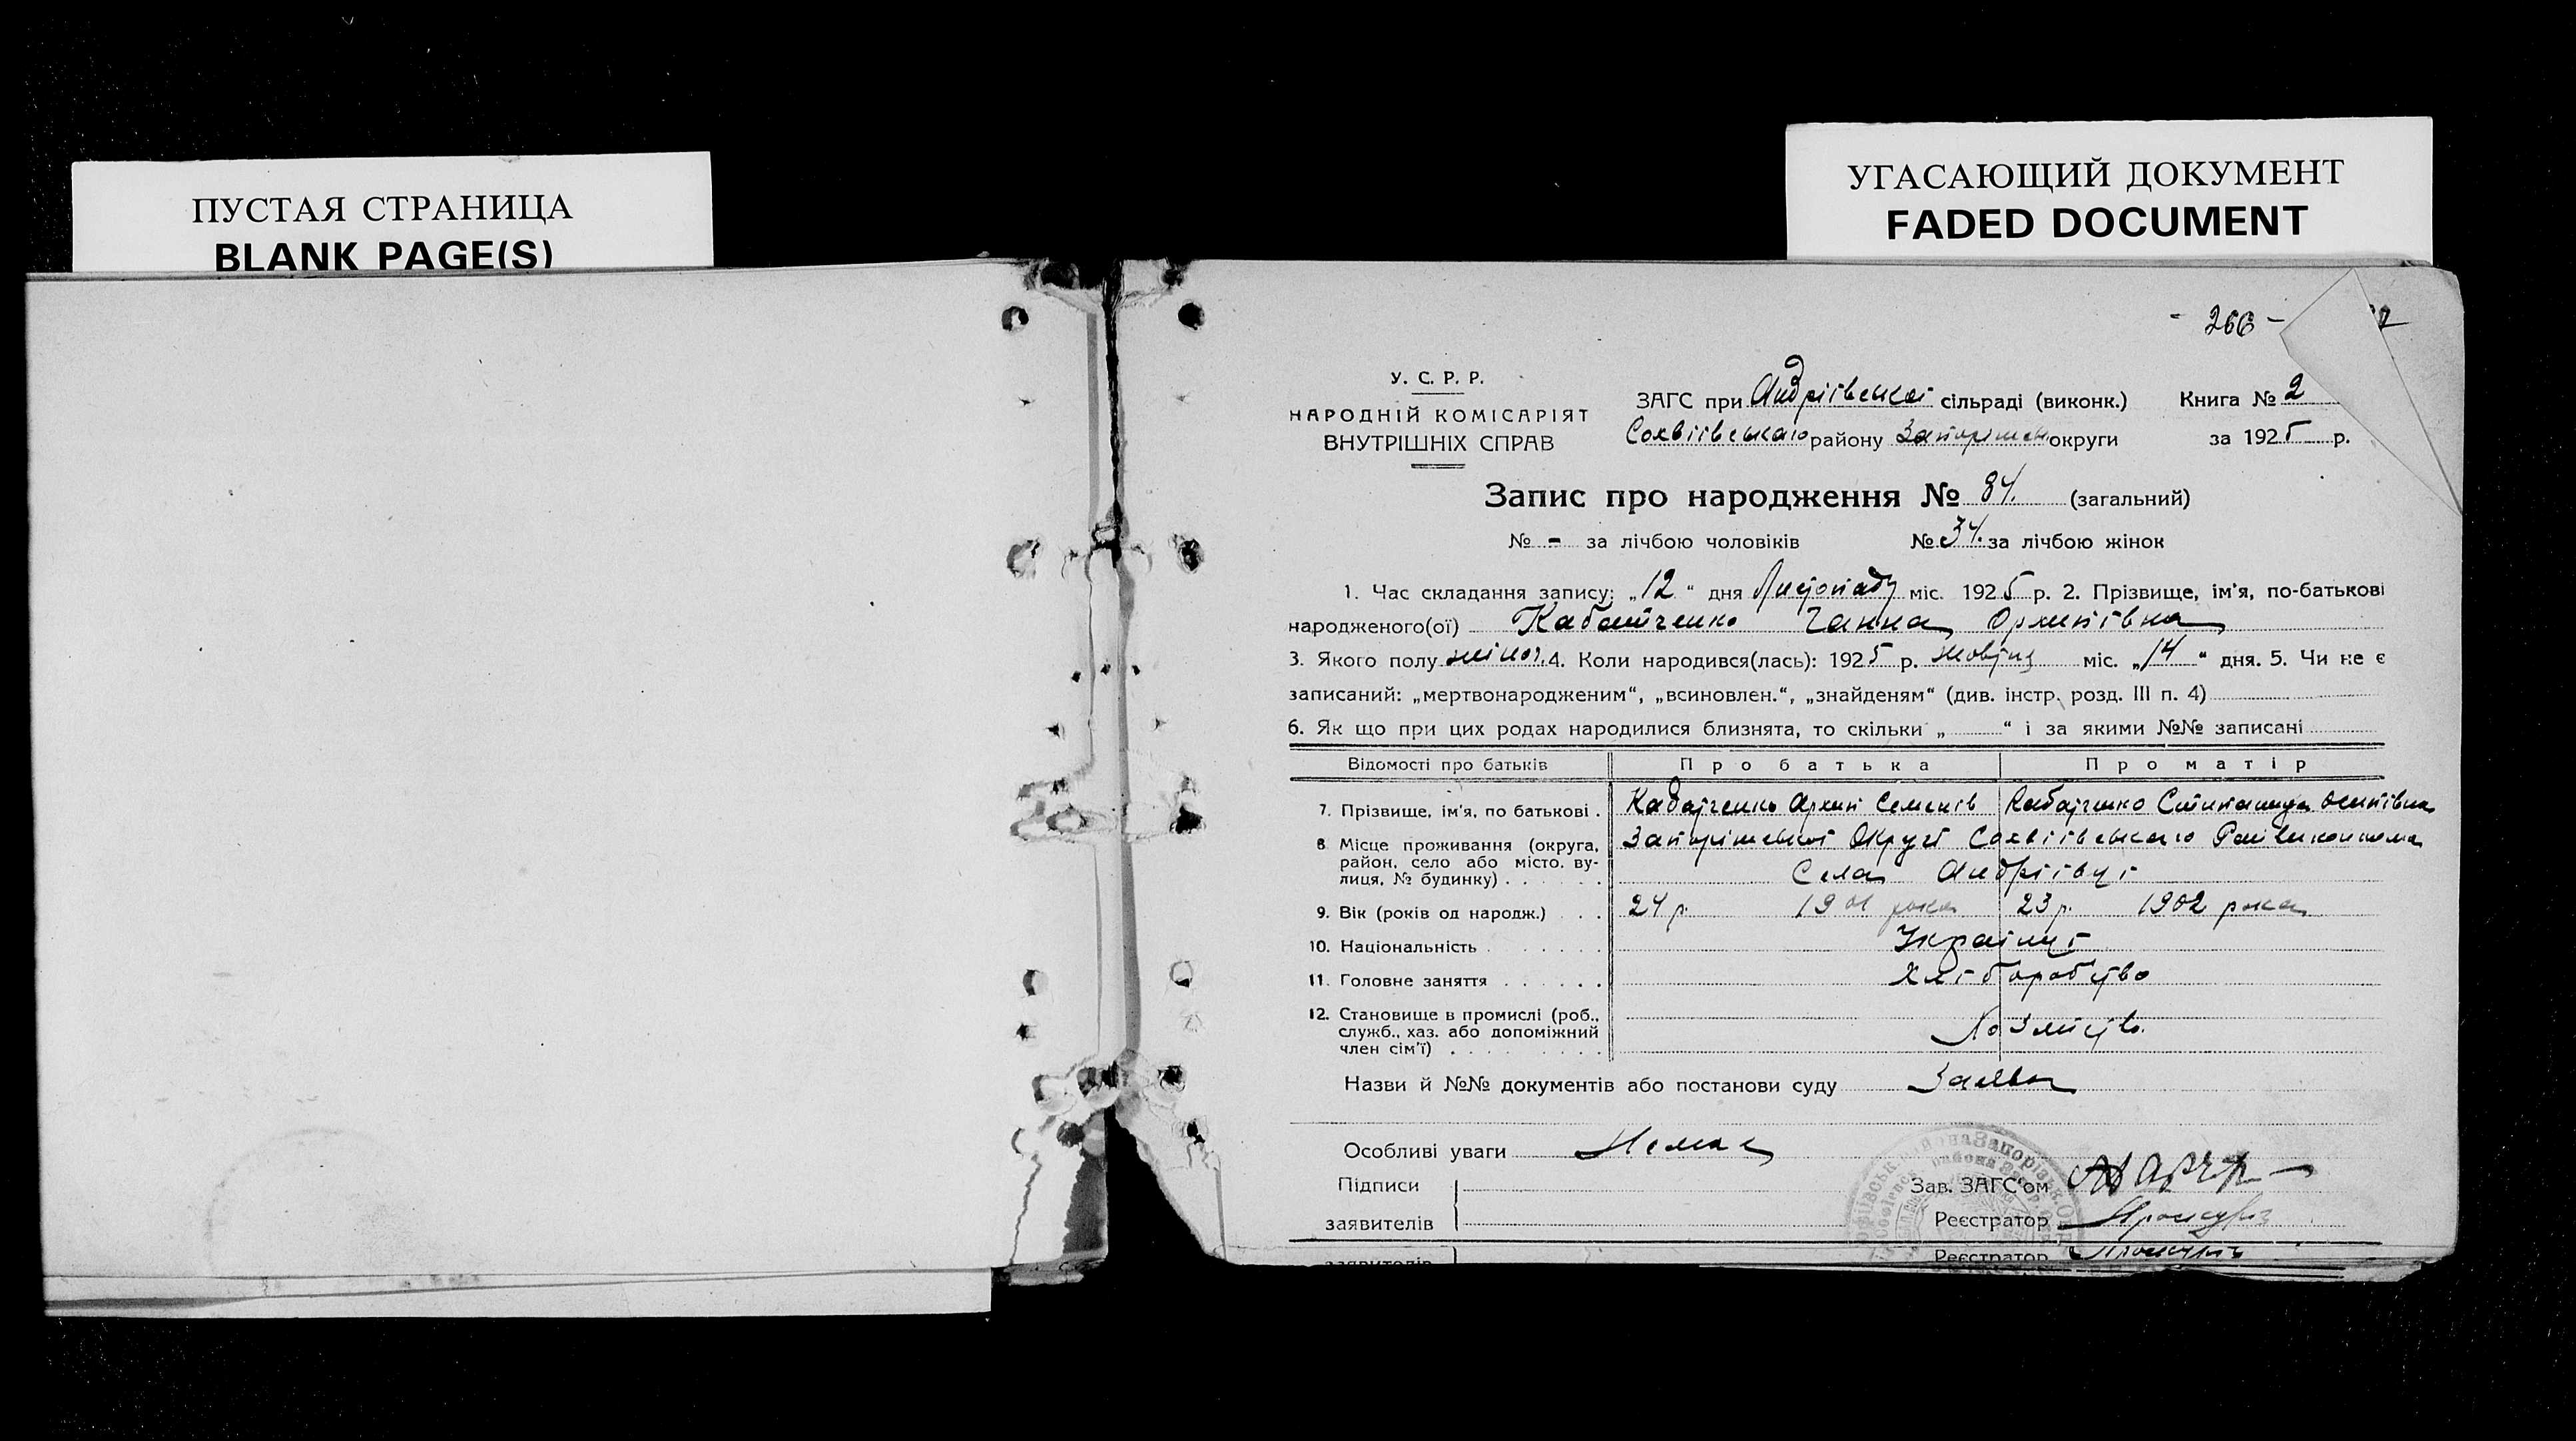 ПУСТАЯ СТРАНИЦА
BLANK PAGE(S)
УГАСАЮЩИЙ ДОКУМЕНТ
FADED DOCUMENT
- 266 -
У. С. Р. Р.
НАРОДНІЙ КОМІСАРІЯТ
ВНУТРІШНІХ СПРАВ
ЗАГС при Андріївській сільраді (виконк.) Книга № 2
Софіївського району Запорізьк округи за 1925 р.
Запис про народження № 84. (загальний)
№ - за лічбою чоловіків № 34. за лічбою жінок
1. Час складання запису: „12“ дня Листопаду міс. 1925 р. 2. Прізвище, ім'я, по-батькові
народженого(ої) Кабатченко Ганна Орхипівна
3. Якого полу жіноч. 4. Коли народився(лась): 1925 р. Жовтня міс. „14“ дня. 5. Чи не є
записаний: „мертвонародженим“, „всиновлен.“, „знайденям“ (див. інстр. розд. III п. 4)
6. Як що при цих родах народилися близнята, то скільки „ “ і за якими №№ записані
Відомості про батьків Про батька Про матір
7. Прізвище, ім'я, по батькові . Кабатченко Архип Семенів Кабатченко Осипівна
8 Місце проживання (округа, район, село або місто, вулиця, № будинку) Запорізької Округи Софіївського Райвиконкома
Села Андріївці
9. Вік (років од народж.) 24 р. 1901 рока 23 р. 1902 рока
10. Національність Українці
11. Головне заняття Хліборобство
12. Становище в промислі (роб.,
служб., хаз. або допоміжний
член сім'ї)
Назви й №№ документів або постанови суду Заява
Особливі уваги Немає
Підписи Зав. ЗАГС'ом
заявителів Реєстратор
заявителів Реєстратор